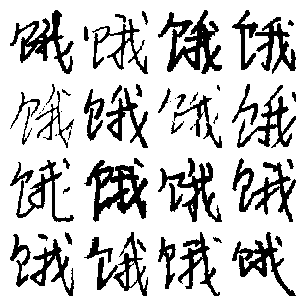 饿饿饿饿
饿饿饿饿
饿饿饿饿
饿饿饿饿